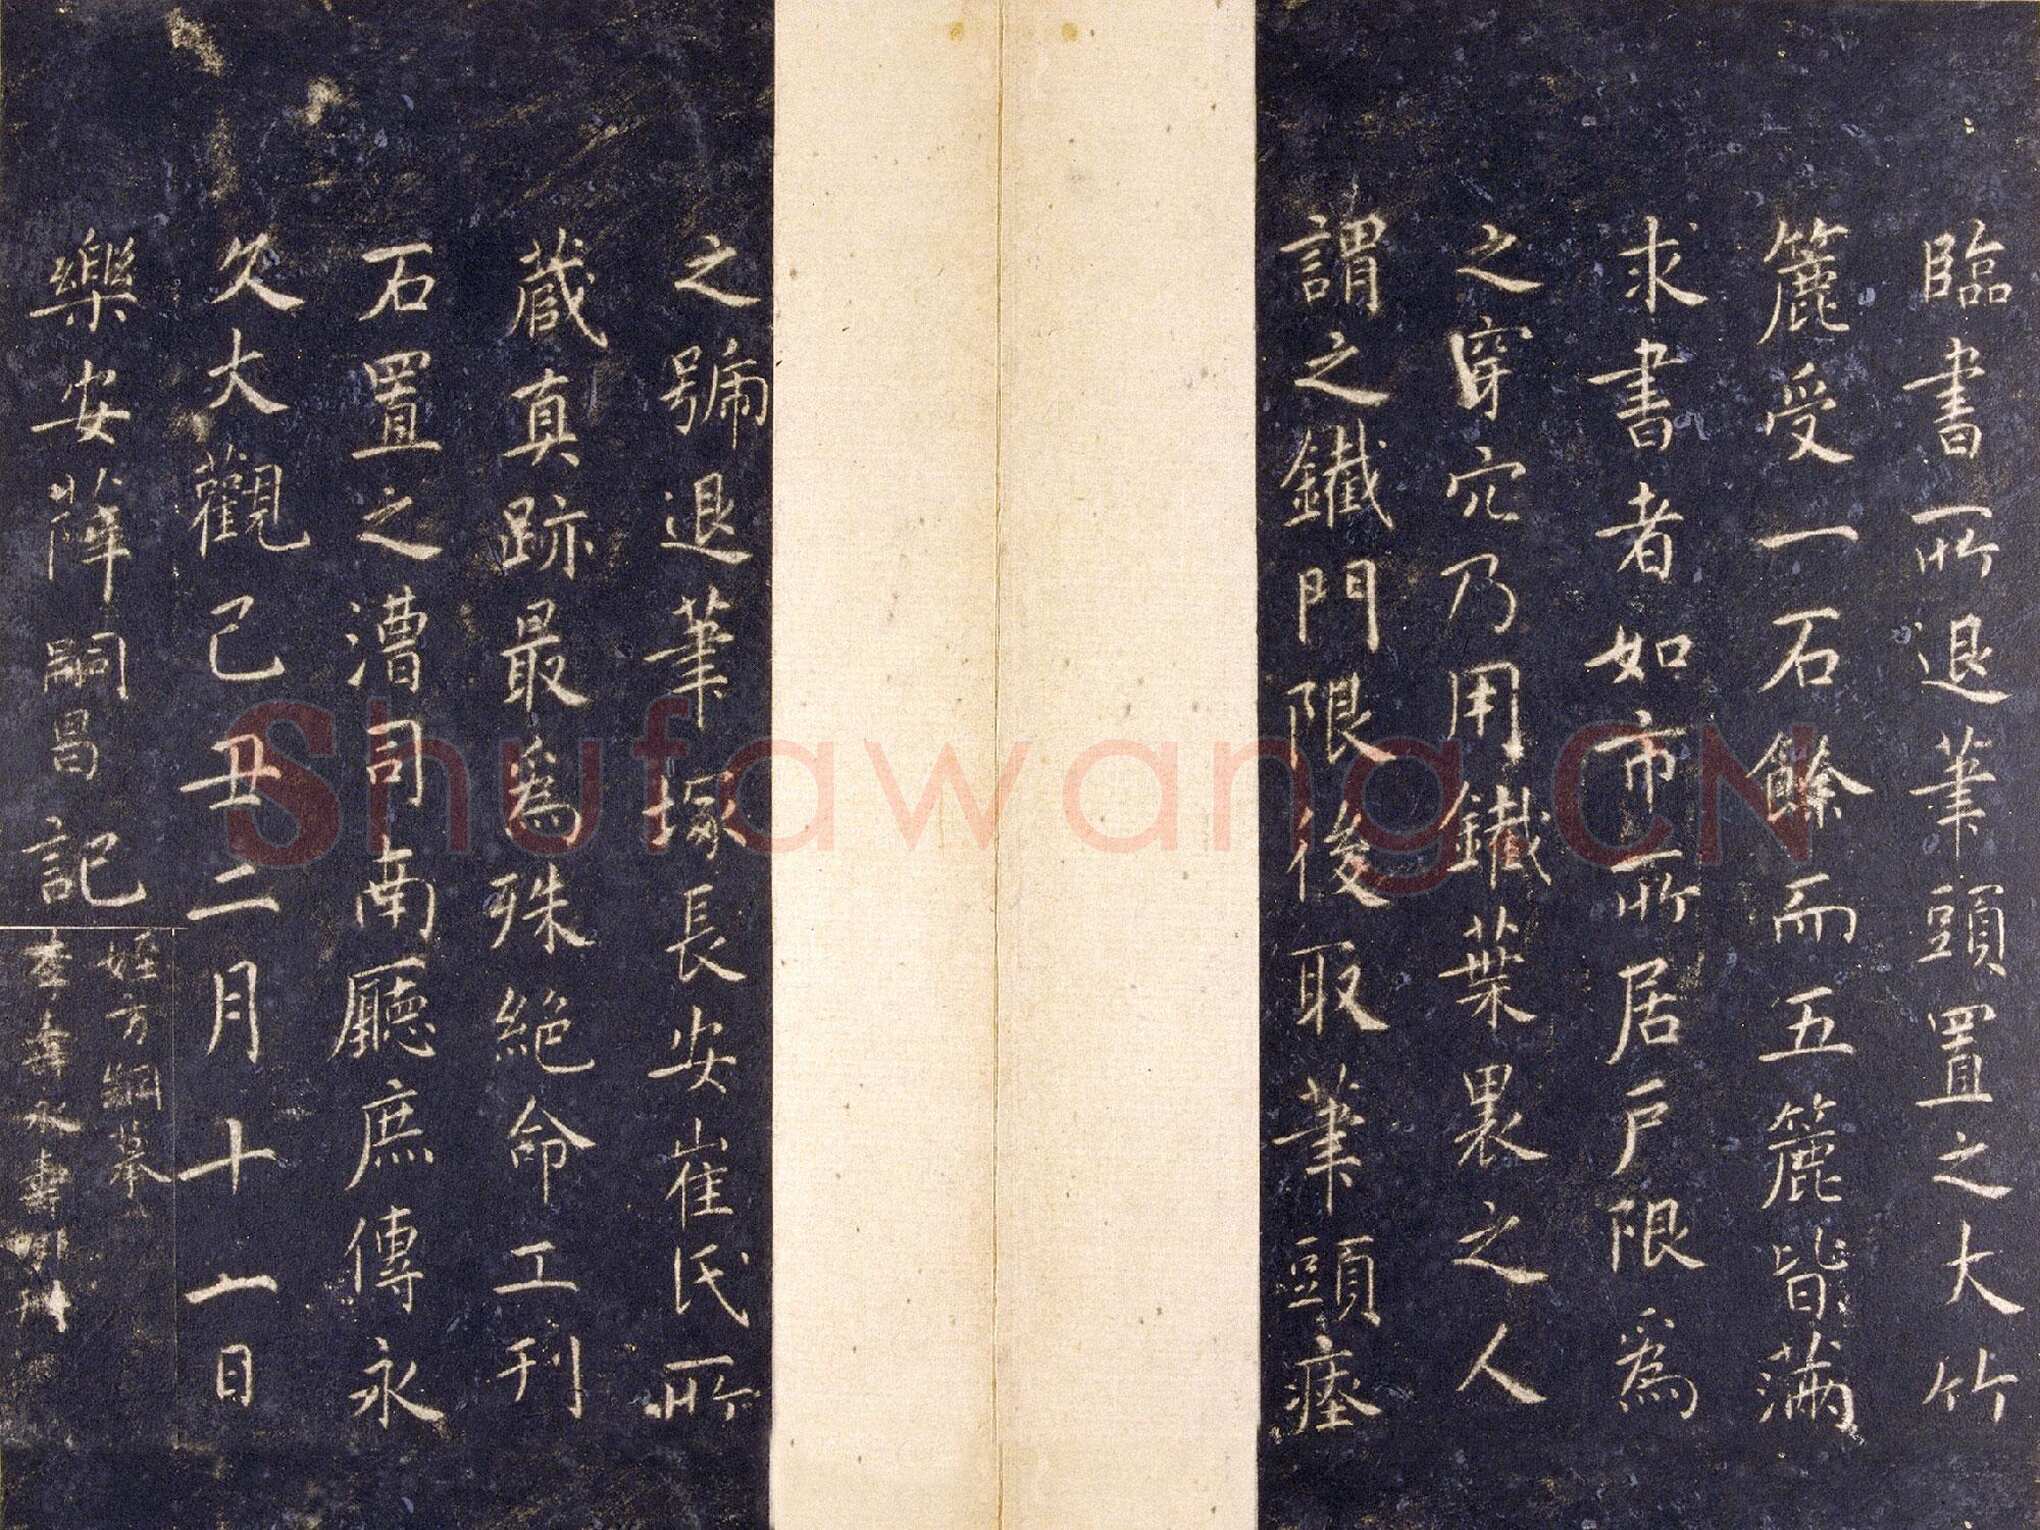 臨書所退筆頭置之大竹
簏受一石餘而五簏皆滿
求書者如市所居戶限爲
之穿穴乃用鐵葉裹之人
謂之鐵門限後取筆頭瘞
之號退筆塚長安崔氏所
藏真跡最爲殊絕命工刊
石置之漕司南廳庶傳永
久大觀己丑二月十一日
樂安薛嗣昌記
姪方綱摹
李壽永壽明刊
ShufawangCN